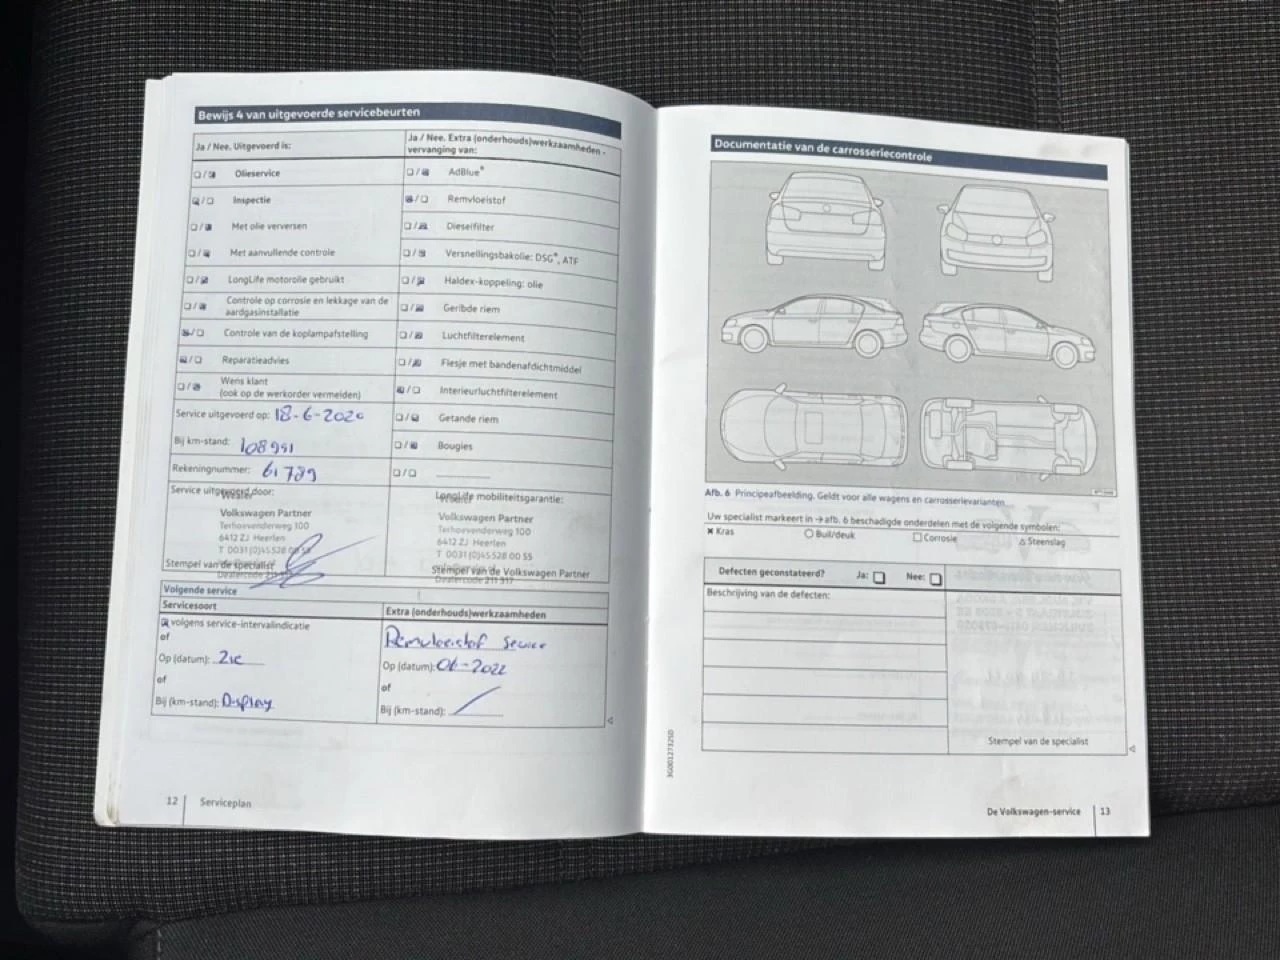 Bewijs 4 van uitgevoerde servicebeurten
Ja / Nee. Uitgevoerd is:
Ja / Nee. Extra (onderhouds)werkzaamheden - vervanging van:
Olieservice
Inspectie
Met olie verversen
Met aanvullende controle
LongLife motorolie gebruikt
Controle op corrosie en lekkage van de
aardgasinstallatie
Controle van de koplampafstelling
Reparatieadvies
Wens klant
(ook op de werkorder vermelden)
Service uitgevoerd op: 18-6-2020
Bij km-stand: 108951
Rekeningnummer: 61789
AdBlue®
Remvloeistof
Dieselfilter
Versnellingsbakolie: DSG®, ATF
Haldex-koppeling: olie
Geribde riem
Luchtfilterelement
Flesje met bandenafdichtmiddel
Interieurluchtfilterelement
Getande riem
Bougies
Service uitgevoerd door:
Volkswagen Partner
Terhoevenderweg 100
6412 ZJ Heerlen
T 0031 (0)45 528 00 55
Stempel van de specialist
LongLife mobiliteitsgarantie:
Volkswagen Partner
Terhoevenderweg 100
6412 ZJ Heerlen
T 0031 (0)45 528 00 55
Stempel van de Volkswagen Partner
Dealercode 211 317
Volgende service
Servicesoort
volgens service-intervalindicatie
of
Op (datum): Zie
of
Bij (km-stand): Display
Extra (onderhouds)werkzaamheden
Remvloeistof Service
Op (datum): 06-2022
of
Bij (km-stand):
12 Serviceplan
Documentatie van de carrosseriecontrole
Afb. 6 Principeafbeelding. Geldt voor alle wagens en carrosserievarianten.
Uw specialist markeert in → afb. 6 beschadigde onderdelen met de volgende symbolen:
× Kras
○ Buil/deuk
□ Corrosie
△ Steenslag
Defecten geconstateerd? Ja: □ Nee: □
Beschrijving van de defecten:
Stempel van de specialist
3G0012732SD
De Volkswagen-service 13